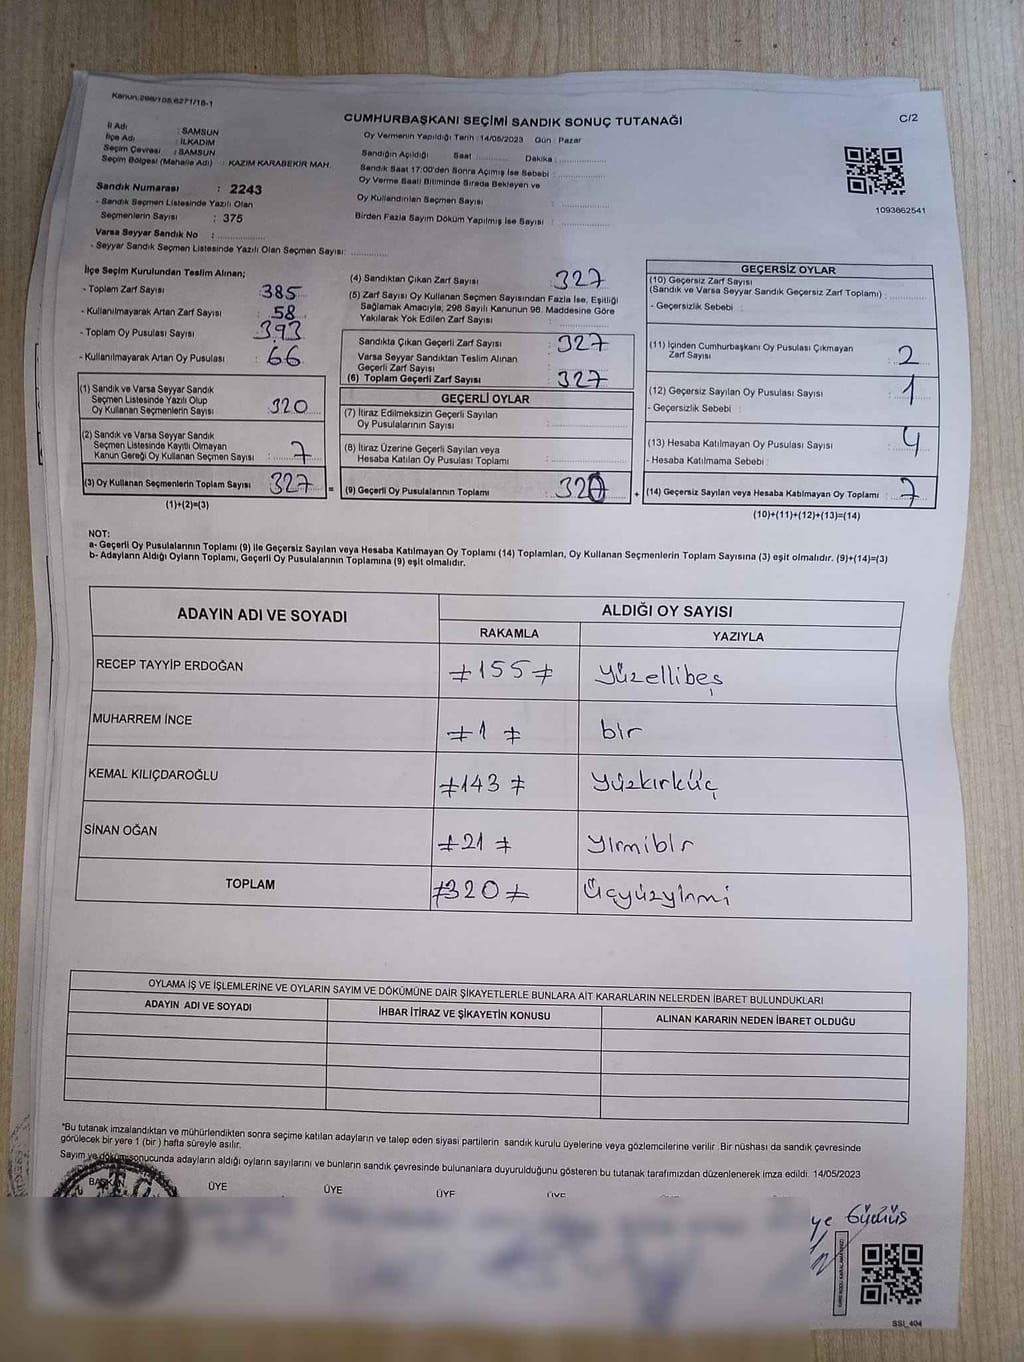 Kanun.298/105,6271/16-1
CUMHURBAŞKANI SEÇİMİ SANDIK SONUÇ TUTANAĞI
C/2
İl Adı : SAMSUN
İlçe Adı : İLKADIM
Seçim Çevresi : SAMSUN
Seçim Bölgesi (Mahalle Adı) : KAZIM KARABEKİR MAH.
Oy Vermenin Yapıldığı Tarih : 14/05/2023 Gün : Pazar
Sandığın Açıldığı Saat ........... Dakika : ...........
Sandık Saat 17:00'den Sonra Açımış İse Sebebi : ...........
Oy Verme Saati Bitiminde Sırada Bekleyen ve
Oy Kullandırılan Seçmen Sayısı : ...........
Birden Fazla Sayım Döküm Yapılmış İse Sayısı : ...........
1093862541
Sandık Numarası : 2243
- Sandık Seçmen Listesinde Yazılı Olan
Seçmenlerin Sayısı : 375
Varsa Seyyar Sandık No : ...........
- Seyyar Sandık Seçmen Listesinde Yazılı Olan Seçmen Sayısı: ...........
İlçe Seçim Kurulundan Teslim Alınan;
- Toplam Zarf Sayısı : 385
- Kullanılmayarak Artan Zarf Sayısı : 58
- Toplam Oy Pusulası Sayısı : 393
- Kullanılmayarak Artan Oy Pusulası : 66
(1) Sandık ve Varsa Seyyar Sandık
Seçmen Listesinde Yazılı Olup
Oy Kullanan Seçmenlerin Sayısı : 320
(2) Sandık ve Varsa Seyyar Sandık
Seçmen Listesinde Kayıtlı Olmayan
Kanun Gereği Oy Kullanan Seçmen Sayısı : 7
(3) Oy Kullanan Seçmenlerin Toplam Sayısı : 327 =
(1)+(2)=(3)
(4) Sandıktan Çıkan Zarf Sayısı : 327
(5) Zarf Sayısı Oy Kullanan Seçmen Sayısından Fazla İse, Eşitliği
Sağlamak Amacıyla, 298 Sayılı Kanunun 98. Maddesine Göre
Yakılarak Yok Edilen Zarf Sayısı : ...........
Sandıkta Çıkan Geçerli Zarf Sayısı : 327
Varsa Seyyar Sandıktan Teslim Alınan
Geçerli Zarf Sayısı : ...........
(6) Toplam Geçerli Zarf Sayısı : 327
GEÇERLİ OYLAR
(7) İtiraz Edilmeksizin Geçerli Sayılan
Oy Pusulalarının Sayısı : ...........
(8) İtiraz Üzerine Geçerli Sayılan veya
Hesaba Katılan Oy Pusulası Toplamı : ...........
(9) Geçerli Oy Pusulalarının Toplamı : 320 +
GEÇERSİZ OYLAR
(10) Geçersiz Zarf Sayısı
(Sandık ve Varsa Seyyar Sandık Geçersiz Zarf Toplamı) : ...........
- Geçersizlik Sebebi :
(11) İçinden Cumhurbaşkanı Oy Pusulası Çıkmayan
Zarf Sayısı : 2
(12) Geçersiz Sayılan Oy Pusulası Sayısı : 1
- Geçersizlik Sebebi :
(13) Hesaba Katılmayan Oy Pusulası Sayısı : 4
- Hesaba Katılmama Sebebi :
(14) Geçersiz Sayılan veya Hesaba Katılmayan Oy Toplamı : 7
(10)+(11)+(12)+(13)=(14)
NOT:
a- Geçerli Oy Pusulalarının Toplamı (9) ile Geçersiz Sayılan veya Hesaba Katılmayan Oy Toplamı (14) Toplamları, Oy Kullanan Seçmenlerin Toplam Sayısına (3) eşit olmalıdır. (9)+(14)=(3)
b- Adayların Aldığı Oyların Toplamı, Geçerli Oy Pusulalarının Toplamına (9) eşit olmalıdır.
ADAYIN ADI VE SOYADI ALDIĞI OY SAYISI
RAKAMLA YAZIYLA
RECEP TAYYİP ERDOĞAN ≠155≠ Yüzellibeş
MUHARREM İNCE ≠1≠ bir
KEMAL KILIÇDAROĞLU ≠143≠ Yüzkırküç
SİNAN OĞAN ≠21≠ Yirmibir
TOPLAM ≠320≠ Üçyüzyirmi
OYLAMA İŞ VE İŞLEMLERİNE VE OYLARIN SAYIM VE DÖKÜMÜNE DAİR ŞİKAYETLERLE BUNLARA AİT KARARLARIN NELERDEN İBARET BULUNDUKLARI
ADAYIN ADI VE SOYADI İHBAR İTİRAZ VE ŞİKAYETİN KONUSU ALINAN KARARIN NEDEN İBARET OLDUĞU
*Bu tutanak imzalandıktan ve mühürlendikten sonra seçime katılan adayların ve talep eden siyasi partilerin sandık kurulu üyelerine veya gözlemcilerine verilir .Bir nüshası da sandık çevresinde
görülecek bir yere 1 (bir ) hafta süreyle asılır.
Sayım ve döküm sonucunda adayların aldığı oyların sayılarını ve bunların sandık çevresinde bulunanlara duyurulduğunu gösteren bu tutanak tarafımızdan düzenlenerek imza edildi. 14/05/2023
BAŞKAN ÜYE ÜYE ÜYE ÜYE
SSİ_404